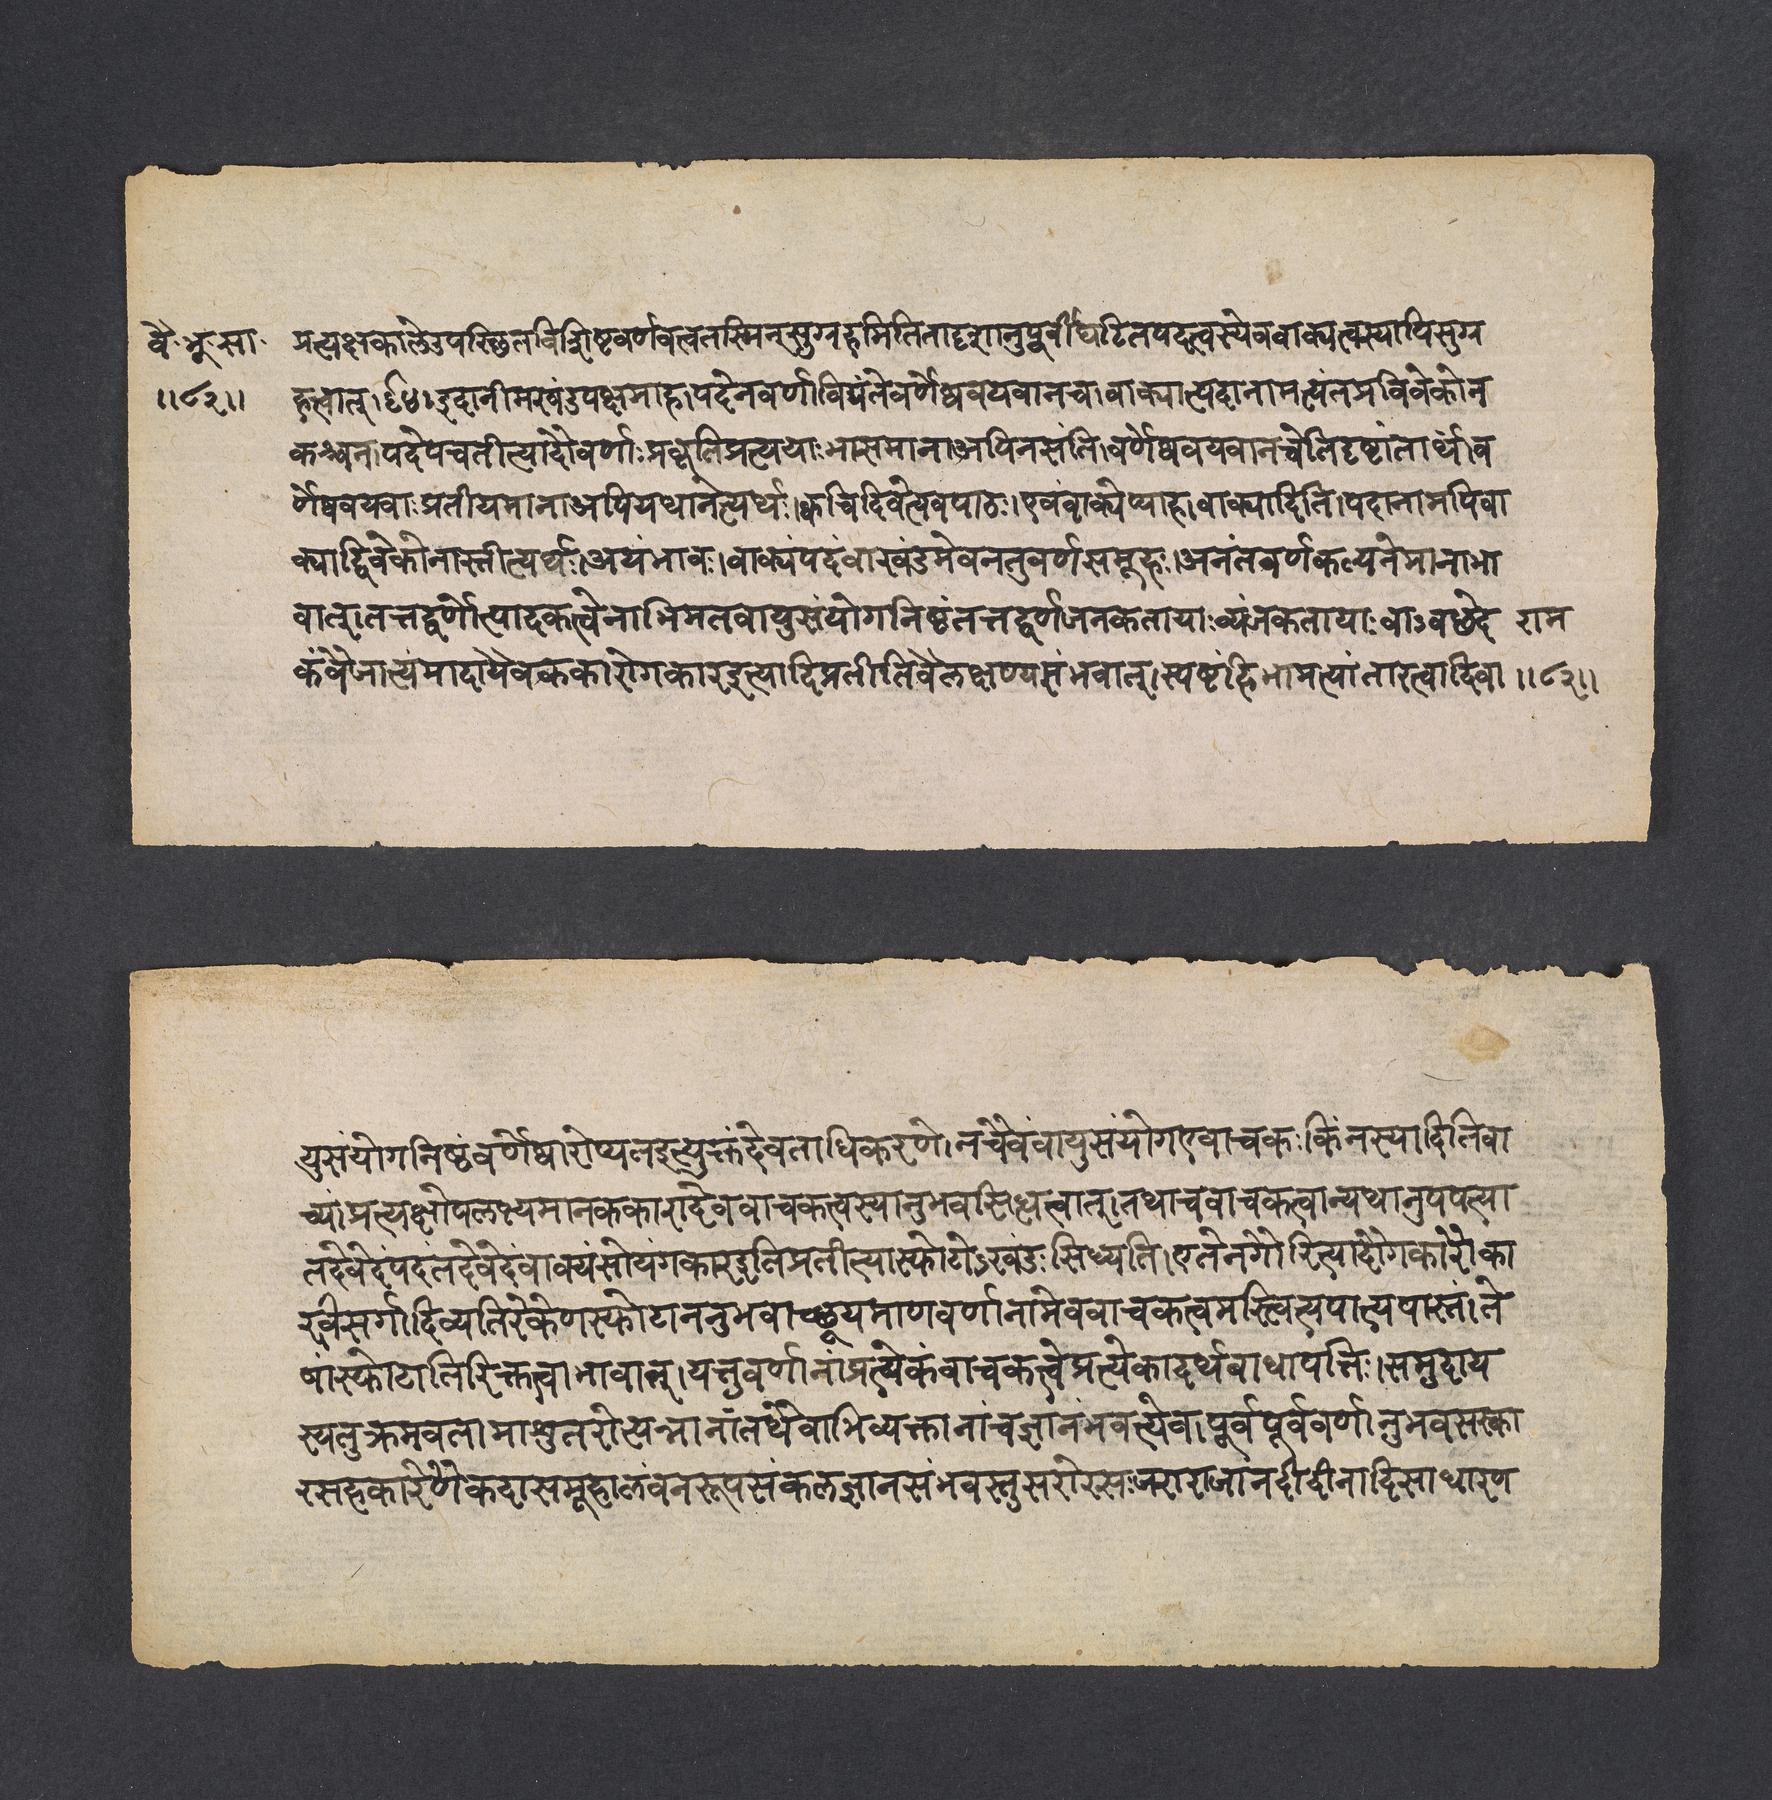 वै॰भू॰सा॰ प्रत्यक्षकालेउपस्थितविशिष्टवर्णवत्वतस्मिन्सुग्रहमितितादृशानुपूर्वीघटितपदत्वस्येववाक्यत्वस्यापिसुग्र
॥८२॥ हत्वात्।६४।इदानीमखंडपक्षमाह।पदेनवर्णाविद्यंतेवर्णेष्ववयवानच।वाक्यात्पदानामत्यंतप्रविवेकोन
कश्चन।पदेपचतीत्यादौवर्णाःप्रकृतिप्रत्ययाःभासमानाअपिनसंति।वर्णेष्ववयवानचेतिदृष्टांतार्थं।व
र्णेष्ववयवाःप्रतीयमानाअपियथानेत्यर्थः।क्वचिदिवेत्येवपाठः।एवंवाक्येप्याह।वाक्यादिति।पदानामपिवा
क्याद्विवेकोनास्तीत्यर्थः।अयंभावः।वाक्यंपदंवाखंडमेवनतुवर्णसमूहः।अनंतवर्णकल्पनेमानाभा
वात्।तत्तद्वर्णोत्पादकत्वेनाभिमतवायुसंयोगनिष्ठंतत्तद्वर्णजनकतायाःव्यंजकतायाःवाऽवछेद राम
कंवैजात्यंमादायैवककारोगकारइत्यादिप्रतीतिवैलक्षण्यसंभवात्।स्पष्टंहिभामत्यांतारत्वादिवा ॥८२॥
युसंयोगनिष्ठंवर्णेष्वारोप्यतइत्युक्तंदेवताधिकरणे।नचैवंवायुसंयोगएवाचकःकिंनस्यादितिवा
च्यं।प्रत्यक्षोपलभ्यमानककारादेववाचकत्वस्यानुभवसिद्धत्वात्।तथाचवाचकत्वान्यथानुपपत्या
तदेवेदंपदंतदेवेदंवाक्यंसोयंगकारइतिप्रतीत्यास्फोटोऽखंडःसिध्यति।एतेनगौरित्यादौगकारौका
रविसर्गादिव्यतिरेकेणस्फोटाननुभवाच्छ्रूयमाणवर्णानामेववाचकत्वमस्त्वित्यपात्यपास्तं।ते
षांस्फोटातिरिक्तत्वाभावात्।यत्तुवर्णानांप्रत्येकंवाचकत्वेप्रत्येकादर्थबोधापत्तिः।समुदाय
स्यतुक्रमवतामाशुतरोत्पन्नानांतथैवाभिव्यक्तानांचज्ञानंभवत्येव।पूर्वपूर्ववर्णानुभवसस्का
रसहकारेणैकदासमूहालंवनरूपसंकलज्ञानसंभवस्तुसरोरसःजराराजानदीदीनादिसाधारण